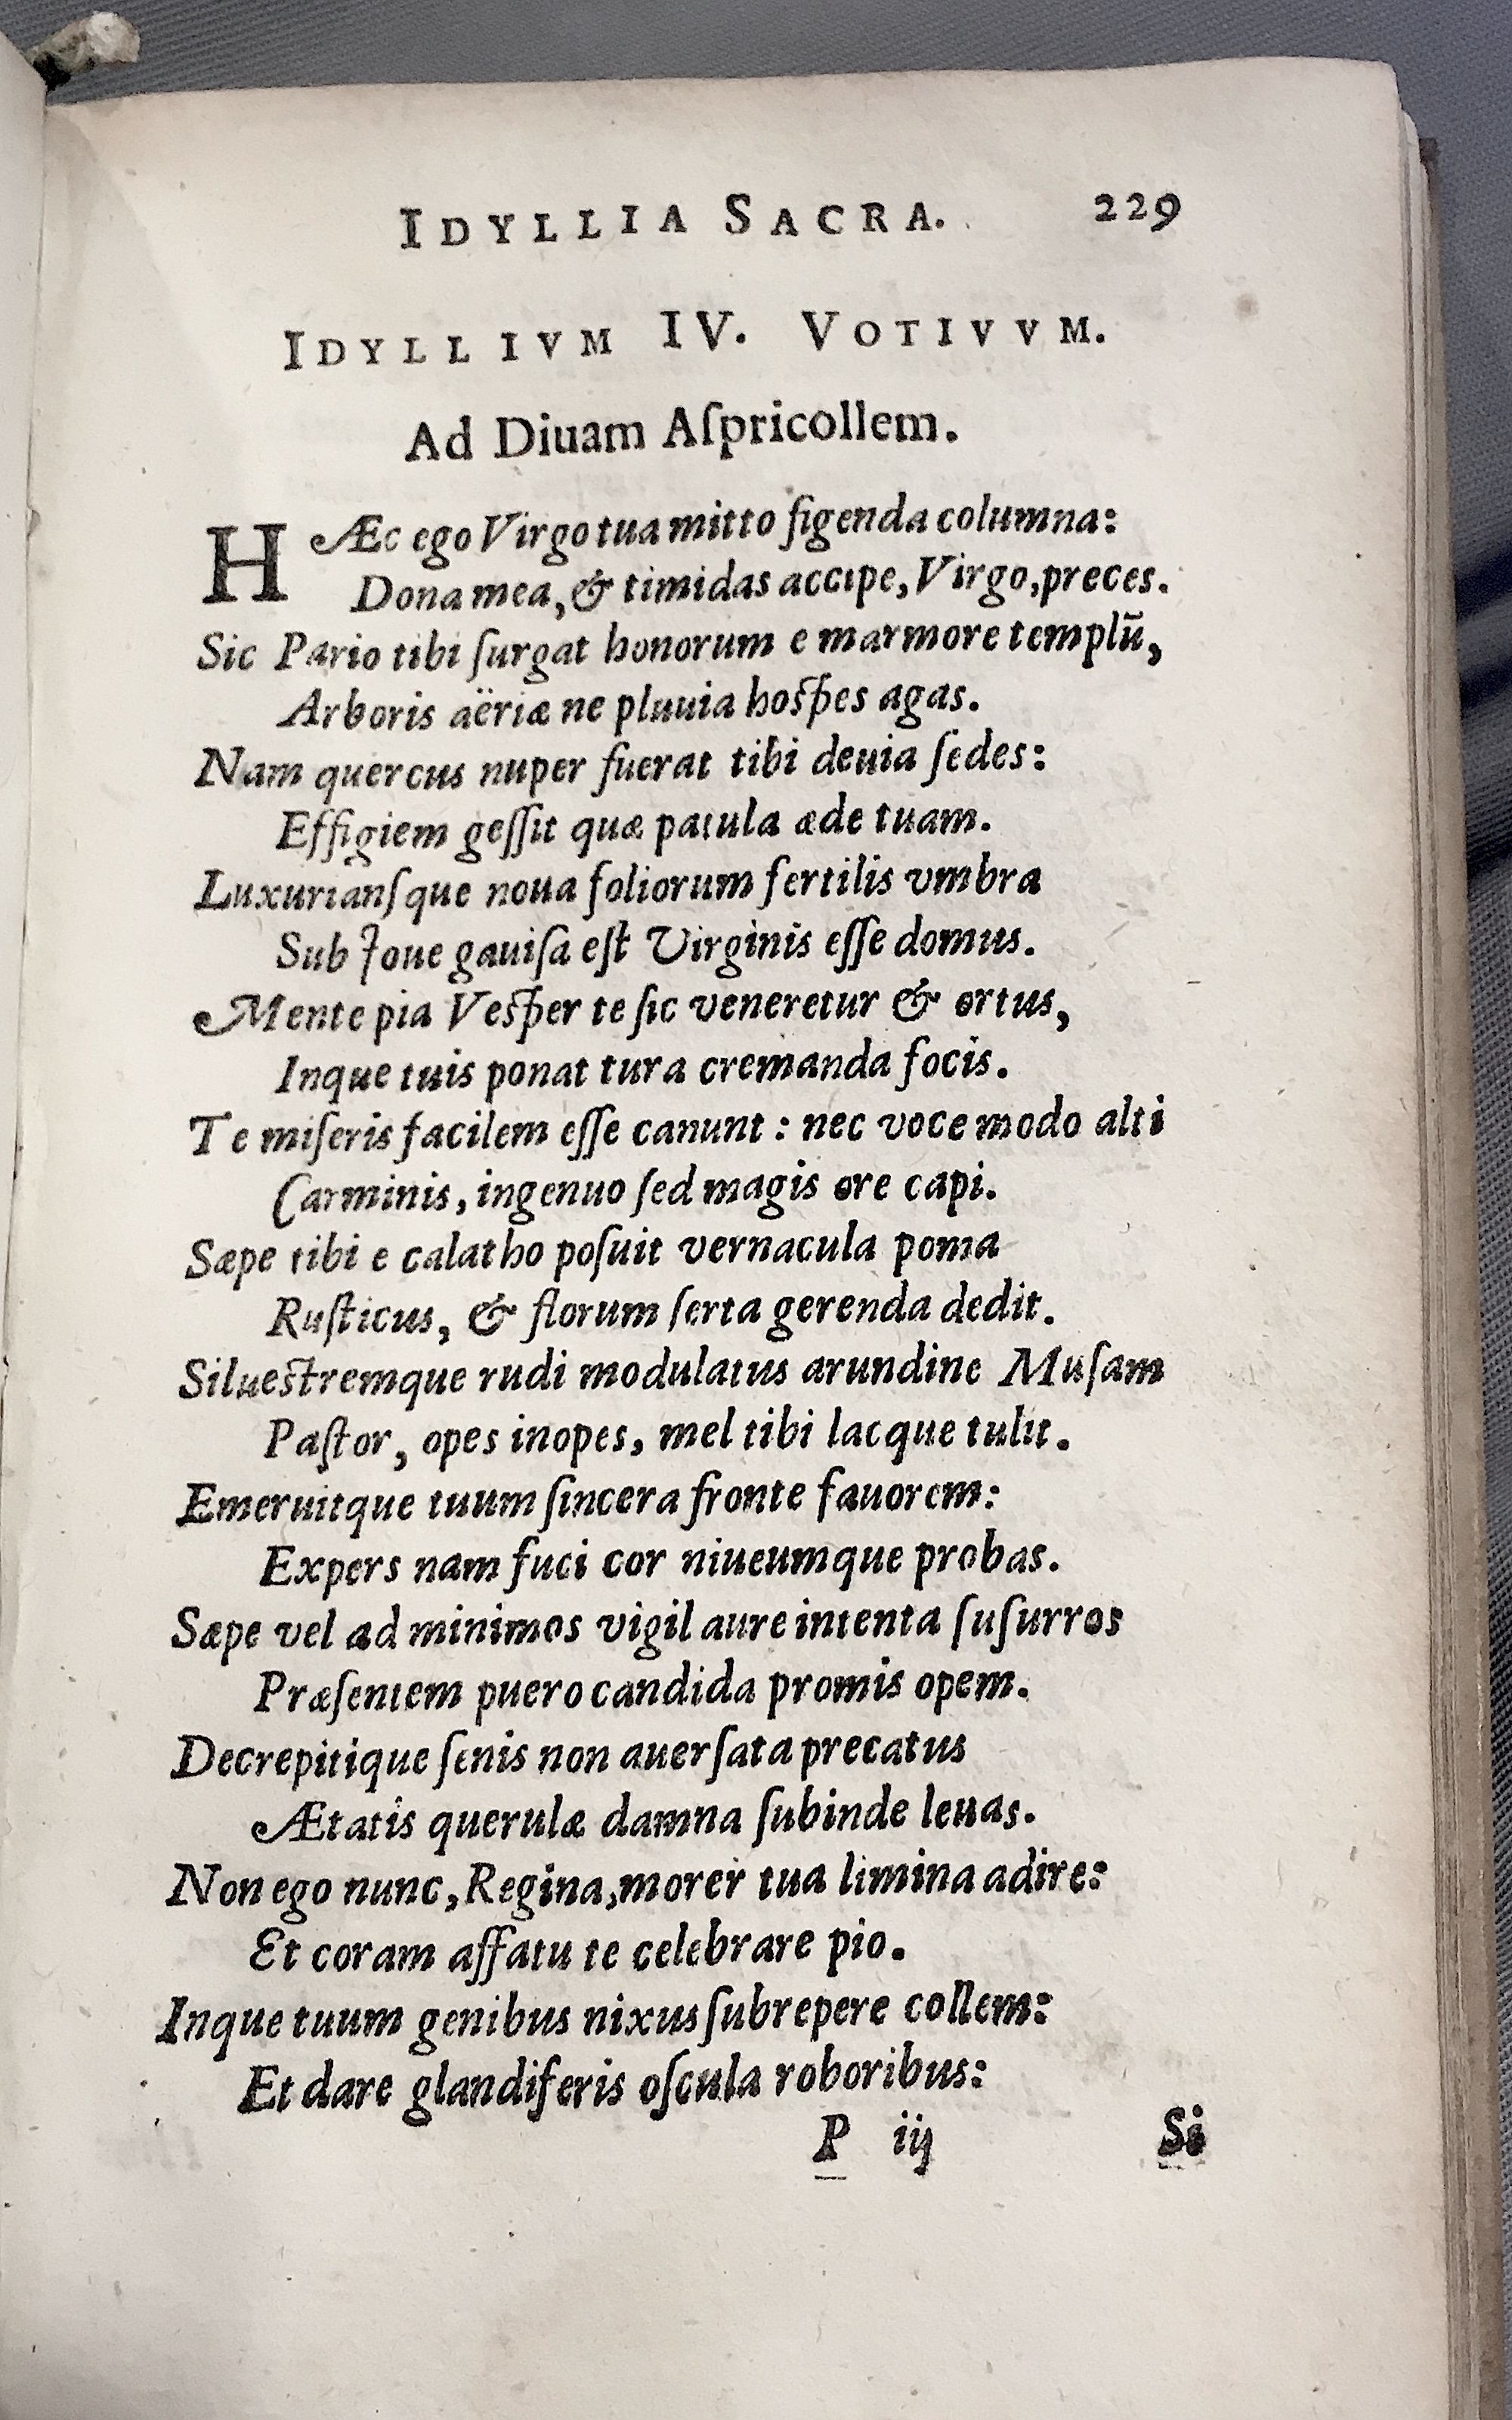 IDYLLIA SACRA. 229
IDYLLIVM IV. VOTIVVM.
Ad Diuam Aſpricollem.
HÆc ego Virgo tua mitto figenda columna:
Dona mea, & timidas accipe, Virgo, preces.
Sic Pario tibi ſurgat honorum e marmore templū,
Arboris aëriæ ne pluuia hoſpes agas.
Nam quercus nuper fuerat tibi deuia ſedes:
Effigiem geſſit quæ patula æde tuam.
Luxurianſque noua foliorum fertilis vmbra
Sub Joue gauiſa eſt Virginis eſſe domus.
Mente pia Veſper te ſic veneretur & ortus,
Inque tuis ponat tura cremanda focis.
Te miſeris facilem eſſe canunt: nec voce modo alti
Carminis, ingenuo ſed magis ore capi.
Sæpe tibi e calatho poſuit vernacula poma
Ruſticus, & florum ſerta gerenda dedit.
Silueſtremque rudi modulatus arundine Muſam
Paſtor, opes inopes, mel tibi lacque tulit.
Emeruitque tuum ſincera fronte fauorem:
Expers nam fuci cor niueumque probas.
Sæpe vel ad minimos vigil aure intenta ſuſurros
Præſentem puero candida promis opem.
Decrepitique ſenis non auerſata precatus
Ætatis querulæ damna ſubinde leuas.
Non ego nunc, Regina, morer tua limina adire:
Et coram affatu te celebrare pio.
Inque tuum genibus nixus ſubrepere collem:
Et dare glandiferis oſcula roboribus:
P iij Si